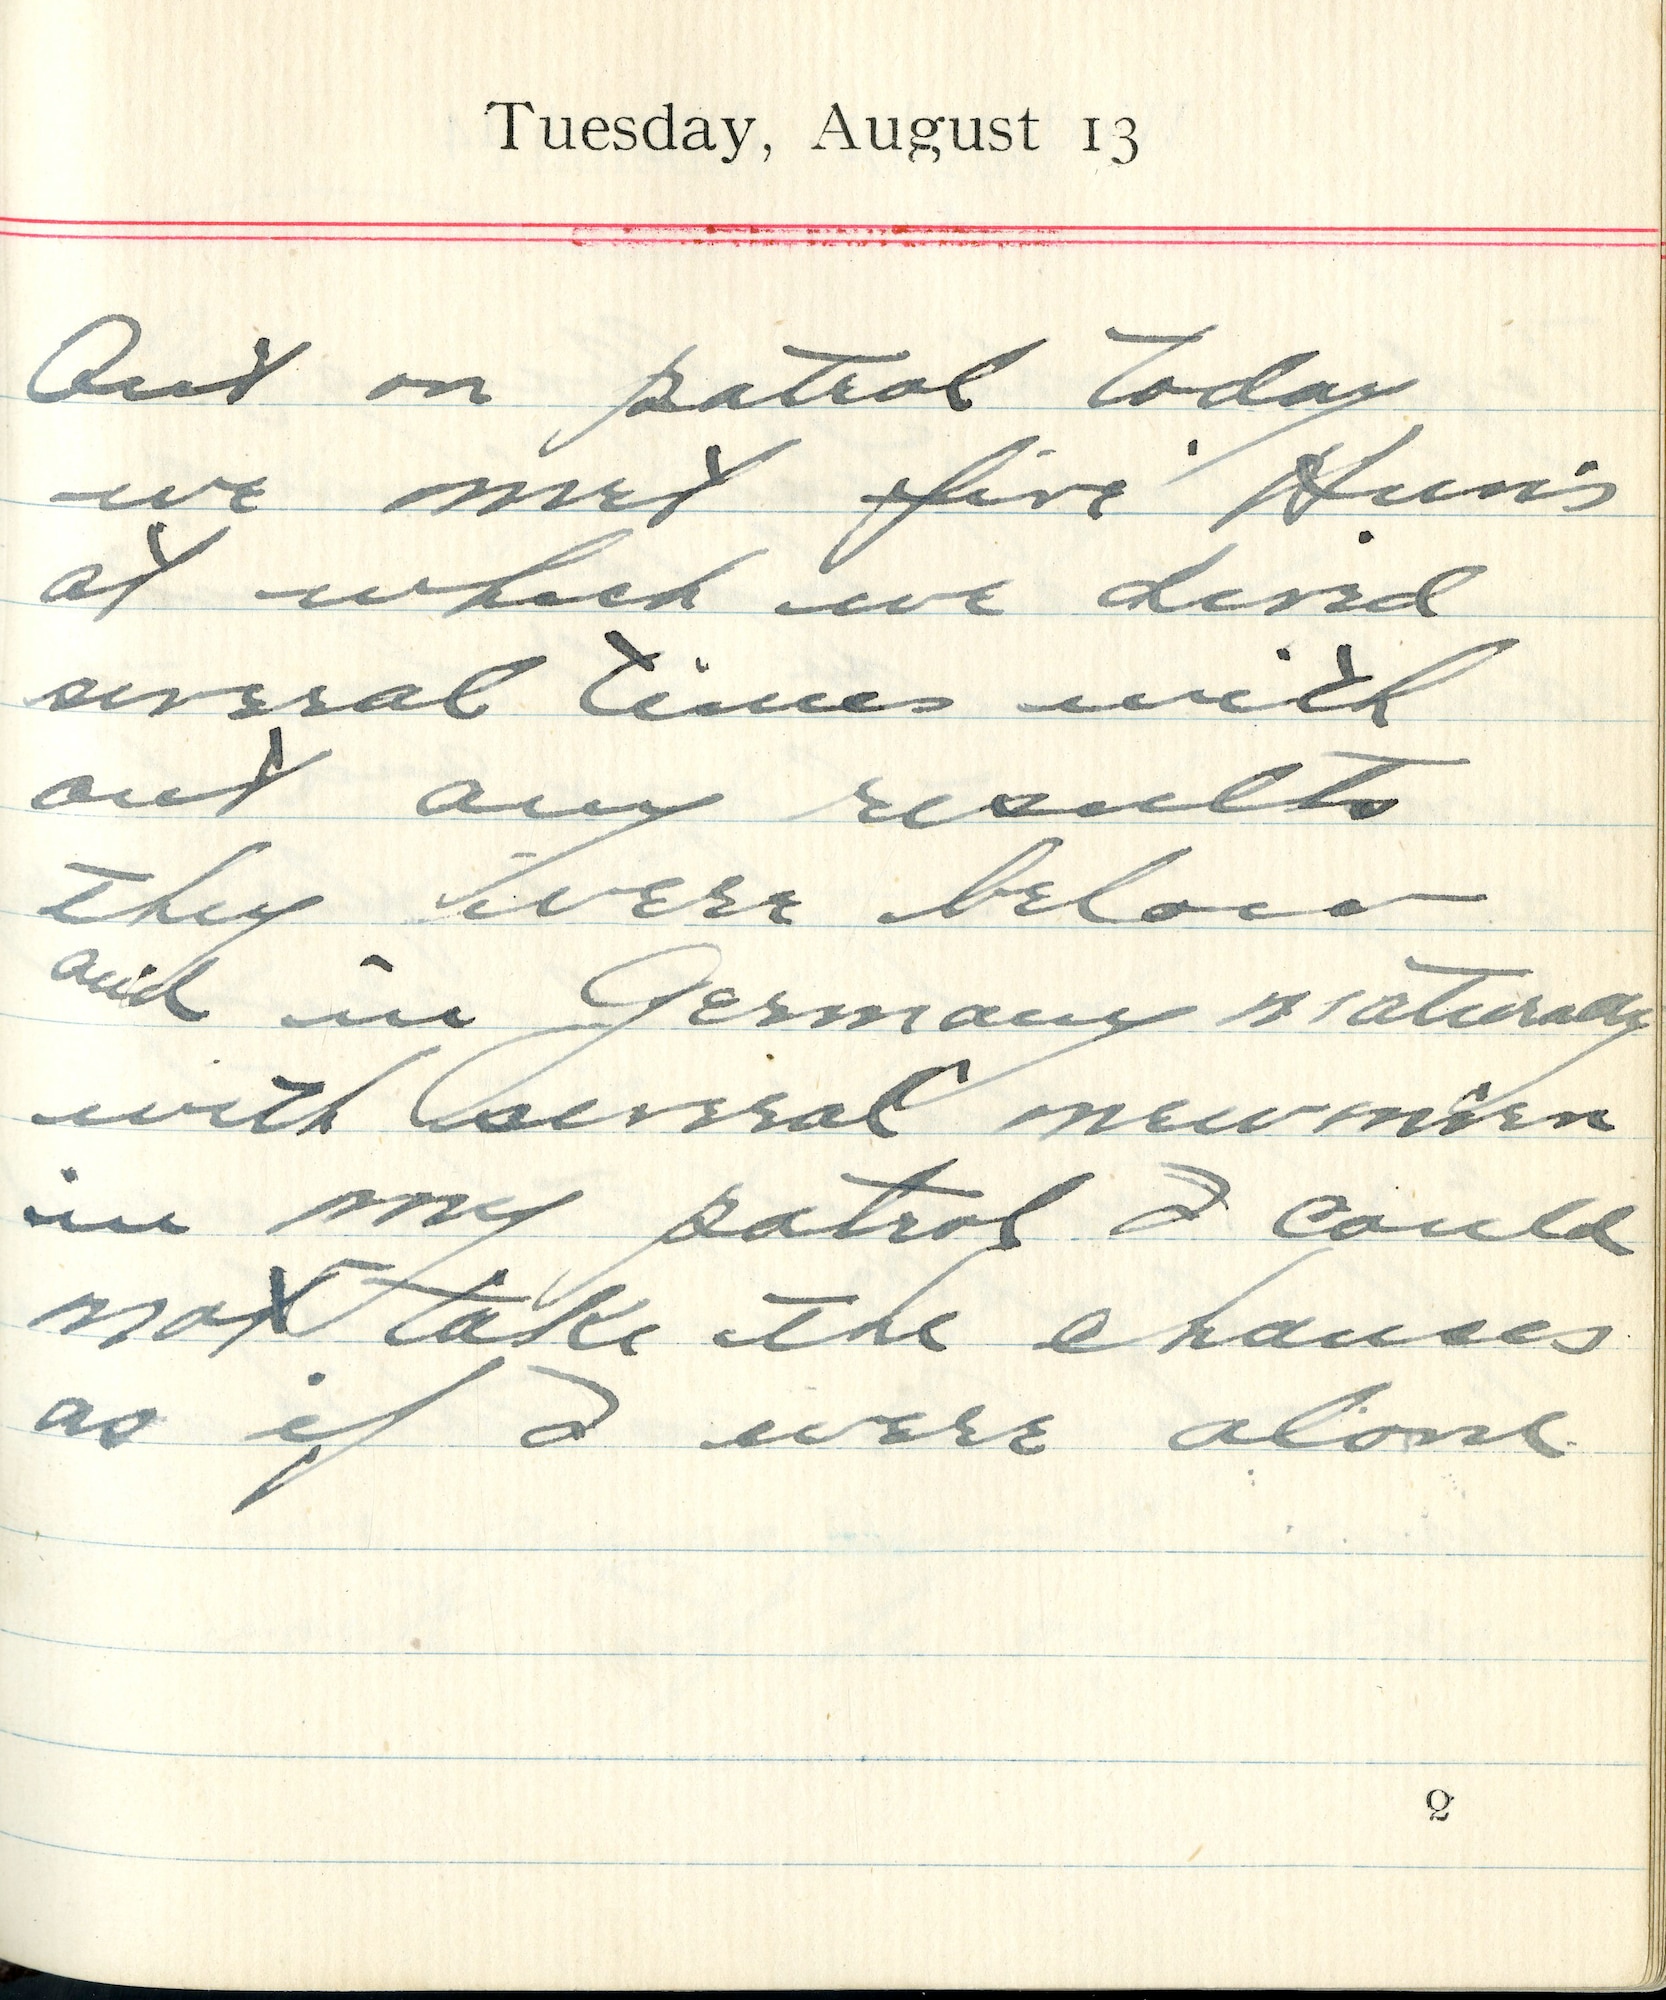 Tuesday, August 13
Out on patrol today
we met five Huns
at which we dived
several times with
out any results
they were below
and in Germany naturaly
with several new men
in my patrol I could
not take the chances
as if I were alone
2